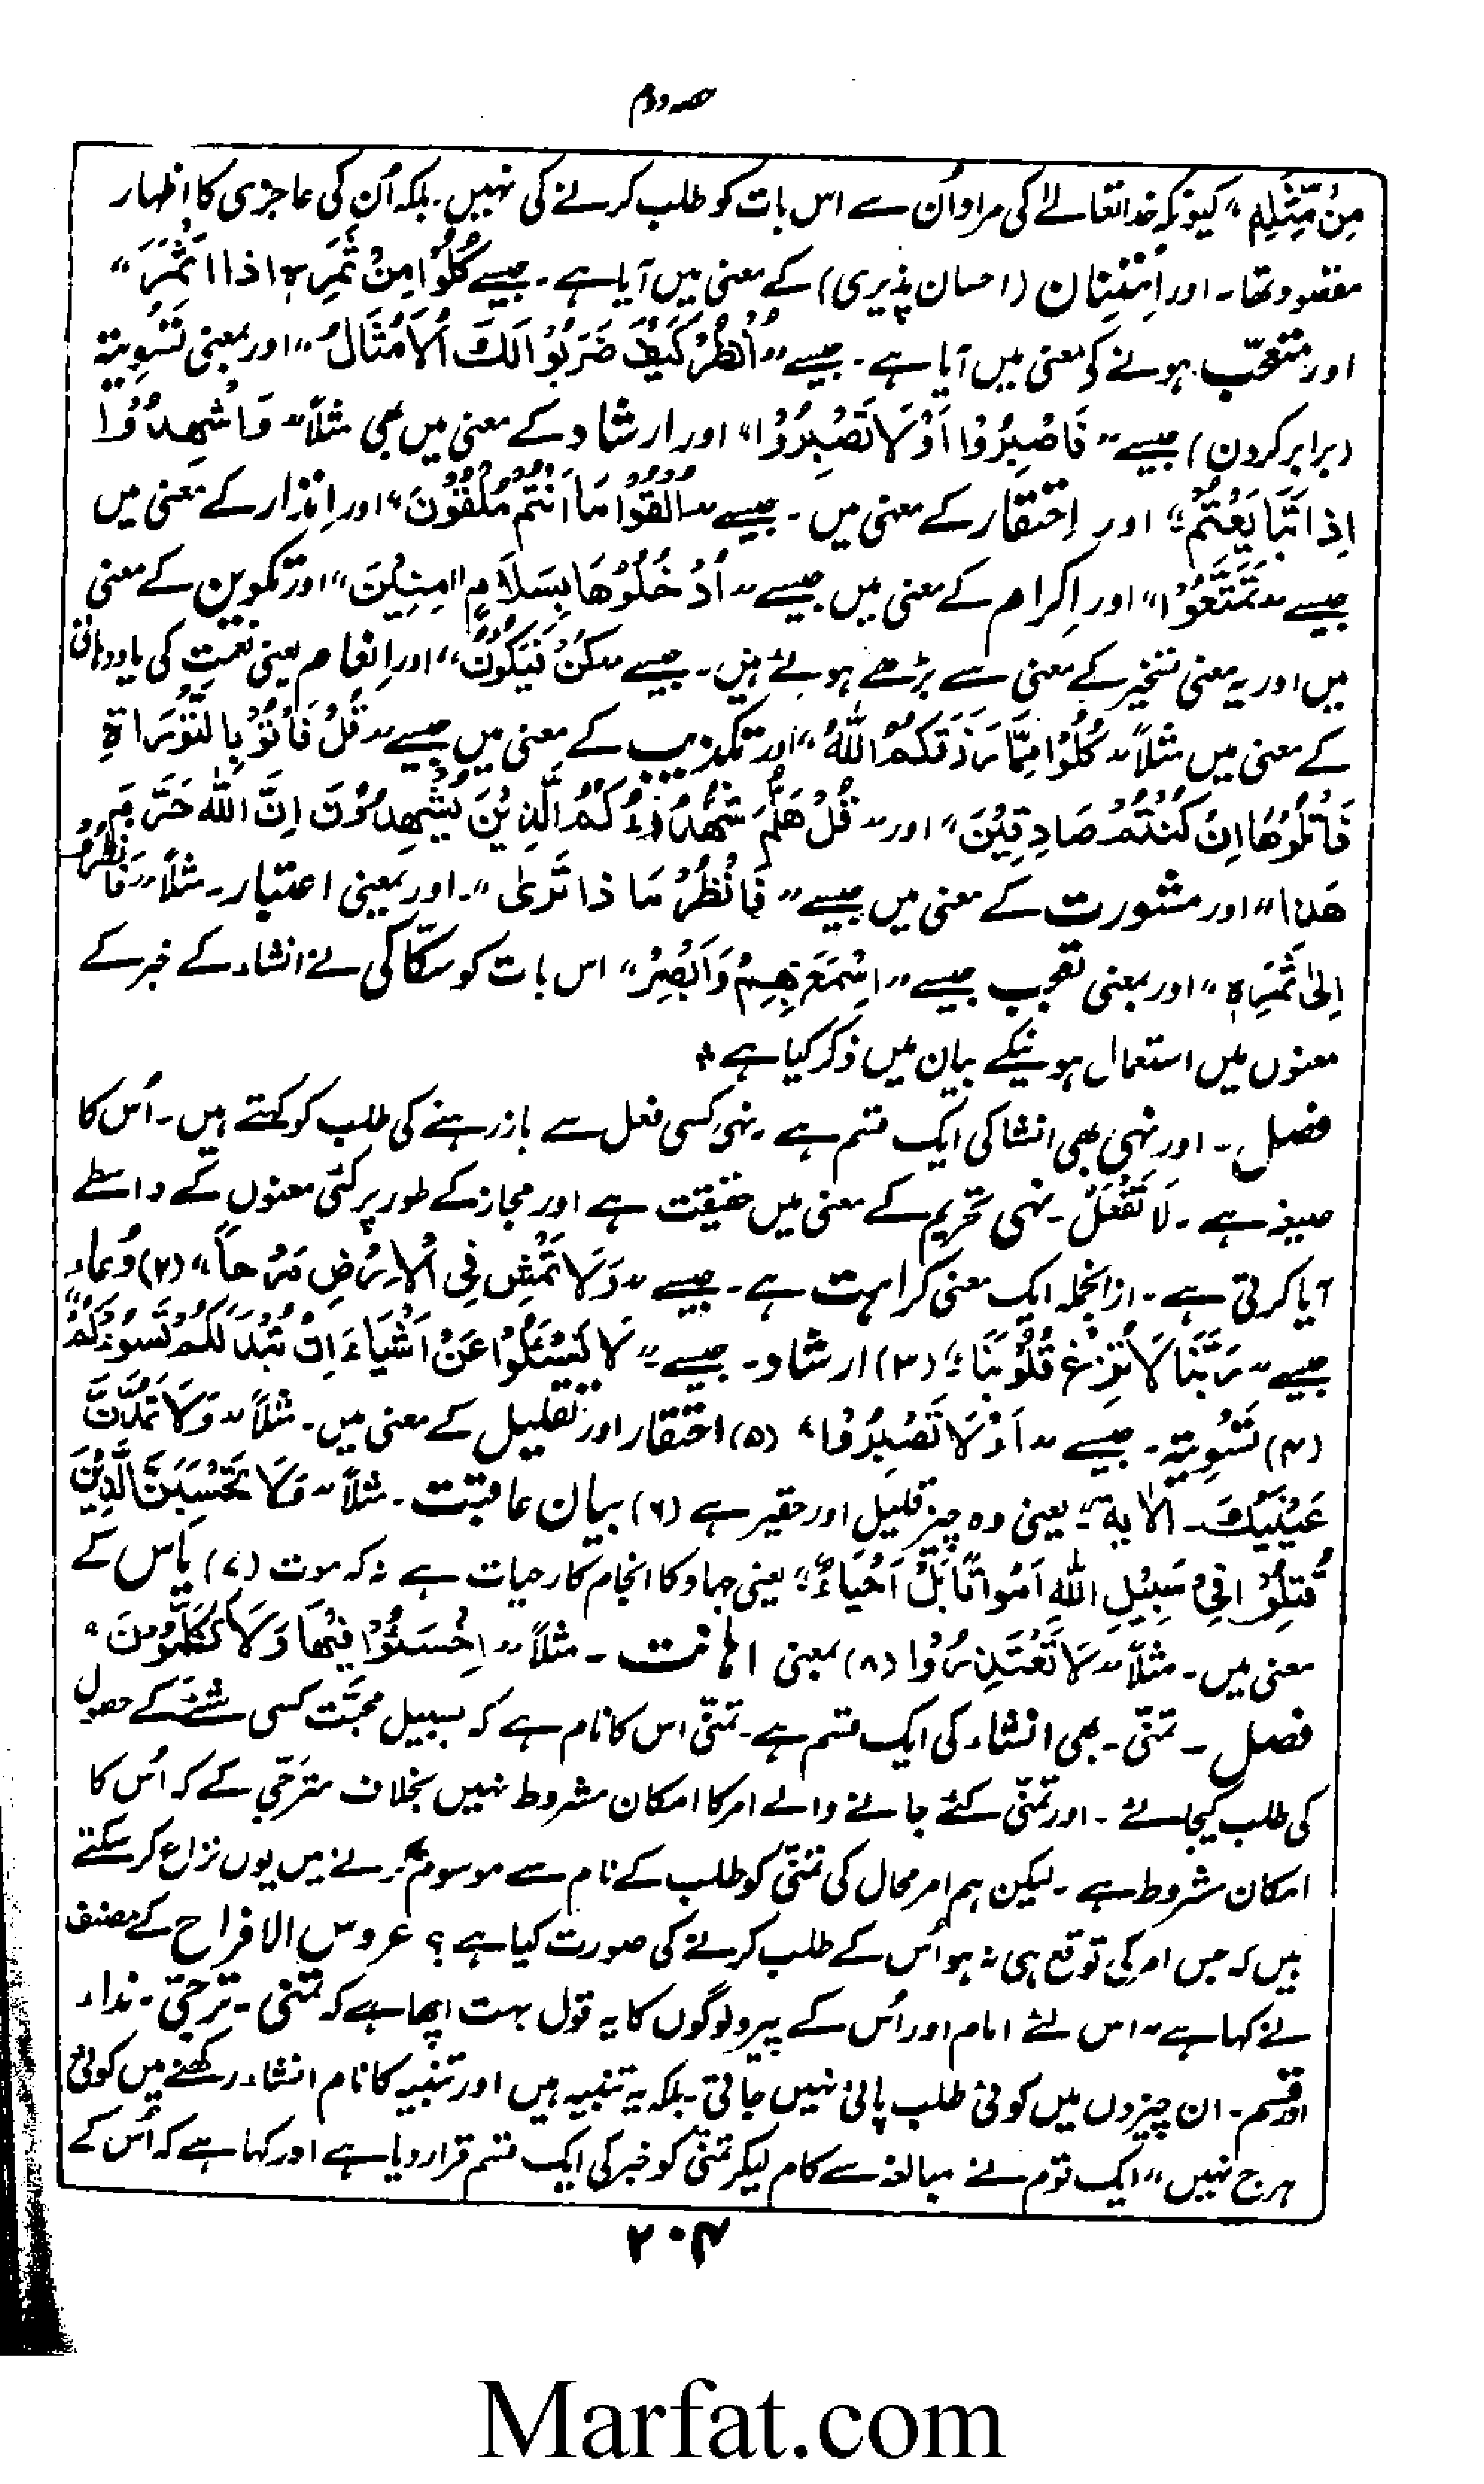 حصہ دوم
مِنْ مِّثْلِهٖ“ کیونکہ خداتعالےٰ کی مراد اُن سے اس بات کو طلب کرنے کی نہیں۔ بلکہ اُن کی عاجزی کا اِظہار
مقصود تھا۔ اور اِمْتِنَان (احسان پذیری) کے معنی میں آیا ہے۔ جیسے كُلُوْا مِنْ ثَمَرِهٖ اِذَا اَثْمَرَ“
اور متعجّب ہونے کے معنی میں آیا ہے۔ جیسے ”اُنْظُرْ كَيْفَ ضَرَبُوْا لَكَ الْاَمْثَالَ“ اور بمعنی تَسْوِیَۃ
(برابر کردن) جیسے ”فَاصْبِرُوْا اَوْ لَا تَصْبِرُوْا“ اور ارشاد کے معنی میں بھی مثلاً ”وَاَشْهِدُوْا
اِذَا تَبَايَعْتُمْ“ اور اِحتقار کے معنی میں۔ جیسے ”اَلْقُوْا مَا اَنْتُمْ مُلْقُوْنَ“ اور اِنذار کے معنی میں
جیسے ”تَمَتَّعُوْا“ اور اِکرام کے معنی میں جیسے ”اُدْخُلُوْهَا بِسَلَامٍ اٰمِنِيْنَ“ اور تکوین کے معنی
میں اور یہ معنی تسخیر کے معنی سے بڑھے ہوئے ہیں۔ جیسے ”كُنْ فَيَكُوْنُ“ اور اِنعام یعنی نعمت کی یاددہانی
کے معنی میں مثلاً ”كُلُوْا مِمَّا رَزَقَكُمُ اللّٰهُ“ اور تکذیب کے معنی میں جیسے ”قُلْ فَاْتُوْا بِالتَّوْرَاةِ
فَاتْلُوْهَا اِنْ كُنْتُمْ صَادِقِيْنَ“ اور ”قُلْ هَلُمَّ شُهَدَاءَكُمُ الَّذِيْنَ يَشْهَدُوْنَ اِنَّ اللّٰهَ حَرَّمَ
هٰذَا“ اور مشورت کے معنی میں جیسے ”فَانْظُرْ مَا ذَا تَرٰى“۔ اور بمعنی اعتبار۔ مثلاً ”فَانْظُرُوْا
اِلٰى ثَمَرِهٖ“ اور بمعنی تعجب جیسے ”اَسْمِعْ بِهِمْ وَاَبْصِرْ“ اس بات کو سکّاکی نے انشاء کے خبر کے
معنوں میں استعمال ہونیکے بیان میں ذکر کیا ہے ؞
فصل۔ اور نہی بھی انشا کی ایک قسم ہے۔ نہی کسی فعل سے باز رہنے کی طلب کو کہتے ہیں۔ اُس کا
صیغہ ہے۔ لَا تَفْعَلْ۔ نہی تحریم کے معنی میں حقیقت ہے اور مجاز کے طور پر کئی معنوں کے واسطے
آیا کرتی ہے۔ ازانجملہ ایک معنی کراہت ہے۔ جیسے ”وَلَا تَمْشِ فِي الْاَرْضِ مَرَحًا“ (۲) دُعاء
جیسے ”رَبَّنَا لَا تُزِغْ قُلُوْبَنَا“ (۳) ارشاد۔ جیسے ”لَا تَسْئَلُوْا عَنْ اَشْيَاءَ اِنْ تُبْدَ لَكُمْ تَسُؤْكُمْ“
(۴) تَسْوِیَۃ۔ جیسے ”اَوْ لَا تَصْبِرُوْا“ (۵) احتقار اور تقلیل کے معنی میں۔ مثلاً ”وَلَا تَمُدَّنَّ
عَيْنَيْكَ۔ الاٰیۃ“ یعنی وہ چیز قلیل اور حقیر ہے (۶) بیان عاقبت۔ مثلاً ”وَلَا تَحْسَبَنَّ الَّذِيْنَ
قُتِلُوْا فِيْ سَبِيْلِ اللّٰهِ اَمْوَاتًا بَلْ اَحْيَاءٌ“ یعنی جہاد کا انجام کار حیات ہے نہ کہ موت (۷) یاس کے
معنی میں۔ مثلاً ”لَا تَعْتَذِرُوْا (۸) بمعنی اہانت۔ مثلاً ”اِخْسَئُوْا فِيْهَا وَلَا تُكَلِّمُوْنَ“
فصل۔ تمنّی۔ بھی انشاء کی ایک قسم ہے۔ تمنّی اس کا نام ہے کہ بسبیل محبّت کسی شئے کے حصول
کی طلب کیجائے۔ اور تمنّی کئے جانے والے امر کا امکان مشروط نہیں بخلاف مترجّی کے کہ اُس کا
امکان مشروط ہے۔ لیکن ہم امر محال کی تمنّی کو طلب کے نام سے موسوم کرنے میں یوں نزاع کرسکتے
ہیں کہ جس امر کی توقع ہی نہ ہو اُس کے طلب کرنے کی صورت کیا ہے؟ عروس الافراح کے مصنف
نے کہا ہے ”اس لئے امام اور اُس کے پیرو لوگوں کا یہ قول بہت اچھا ہے کہ تمنی۔ ترجّی۔ نداء
اور قسم۔ ان چیزوں میں کوئی طلب پائی نہیں جاتی۔ بلکہ یہ تنبیہ ہیں اور تنبیہ کا نام انشاء رکھنے میں کوئی
ہرج نہیں“ ایک قوم نے مبالغہ سے کام لیکر تمنّی کو خبر کی ایک قسم قرار دیا ہے اور کہا ہے کہ اُس کے
۲۰۴
Marfat.com